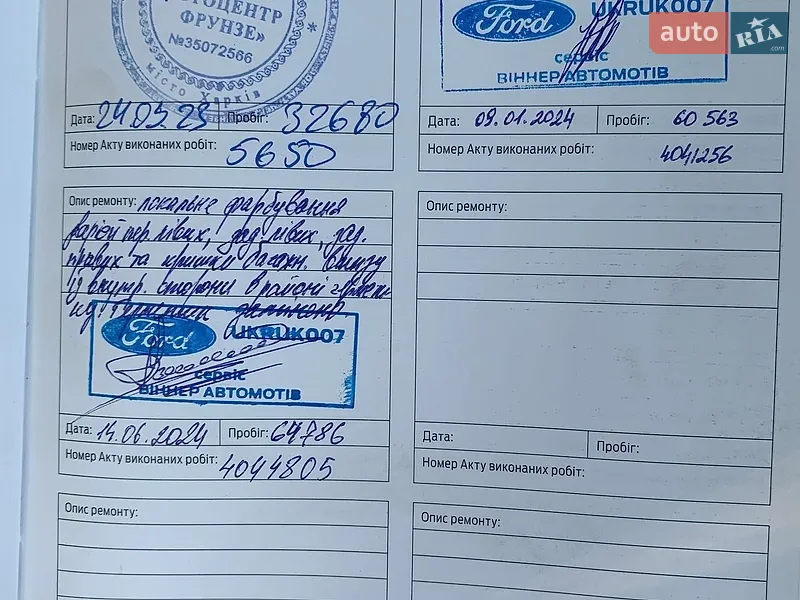 ФРУНЗЕ»
№35072566
місто Харків
Дата: 24.05.23 Пробіг: 32680
Номер Акту виконаних робіт: 5650
Ford UKRUK007
сервіс
ВІННЕР АВТОМОТІВ
auto RIA .com
Дата: 09.01.2024 Пробіг: 60 563
Номер Акту виконаних робіт: 4041256
Опис ремонту: локальне фарбування
дверей пер лівих, зад лівих, зад.
правих та кришки багажн. внизу
із внутр. сторони в районі
Ford UKRUK007
сервіс
ВІННЕР АВТОМОТІВ
Дата: 14.06.2024 Пробіг: 64786
Номер Акту виконаних робіт: 4044805
Опис ремонту:
Дата: Пробіг:
Номер Акту виконаних робіт:
Опис ремонту:
Опис ремонту: